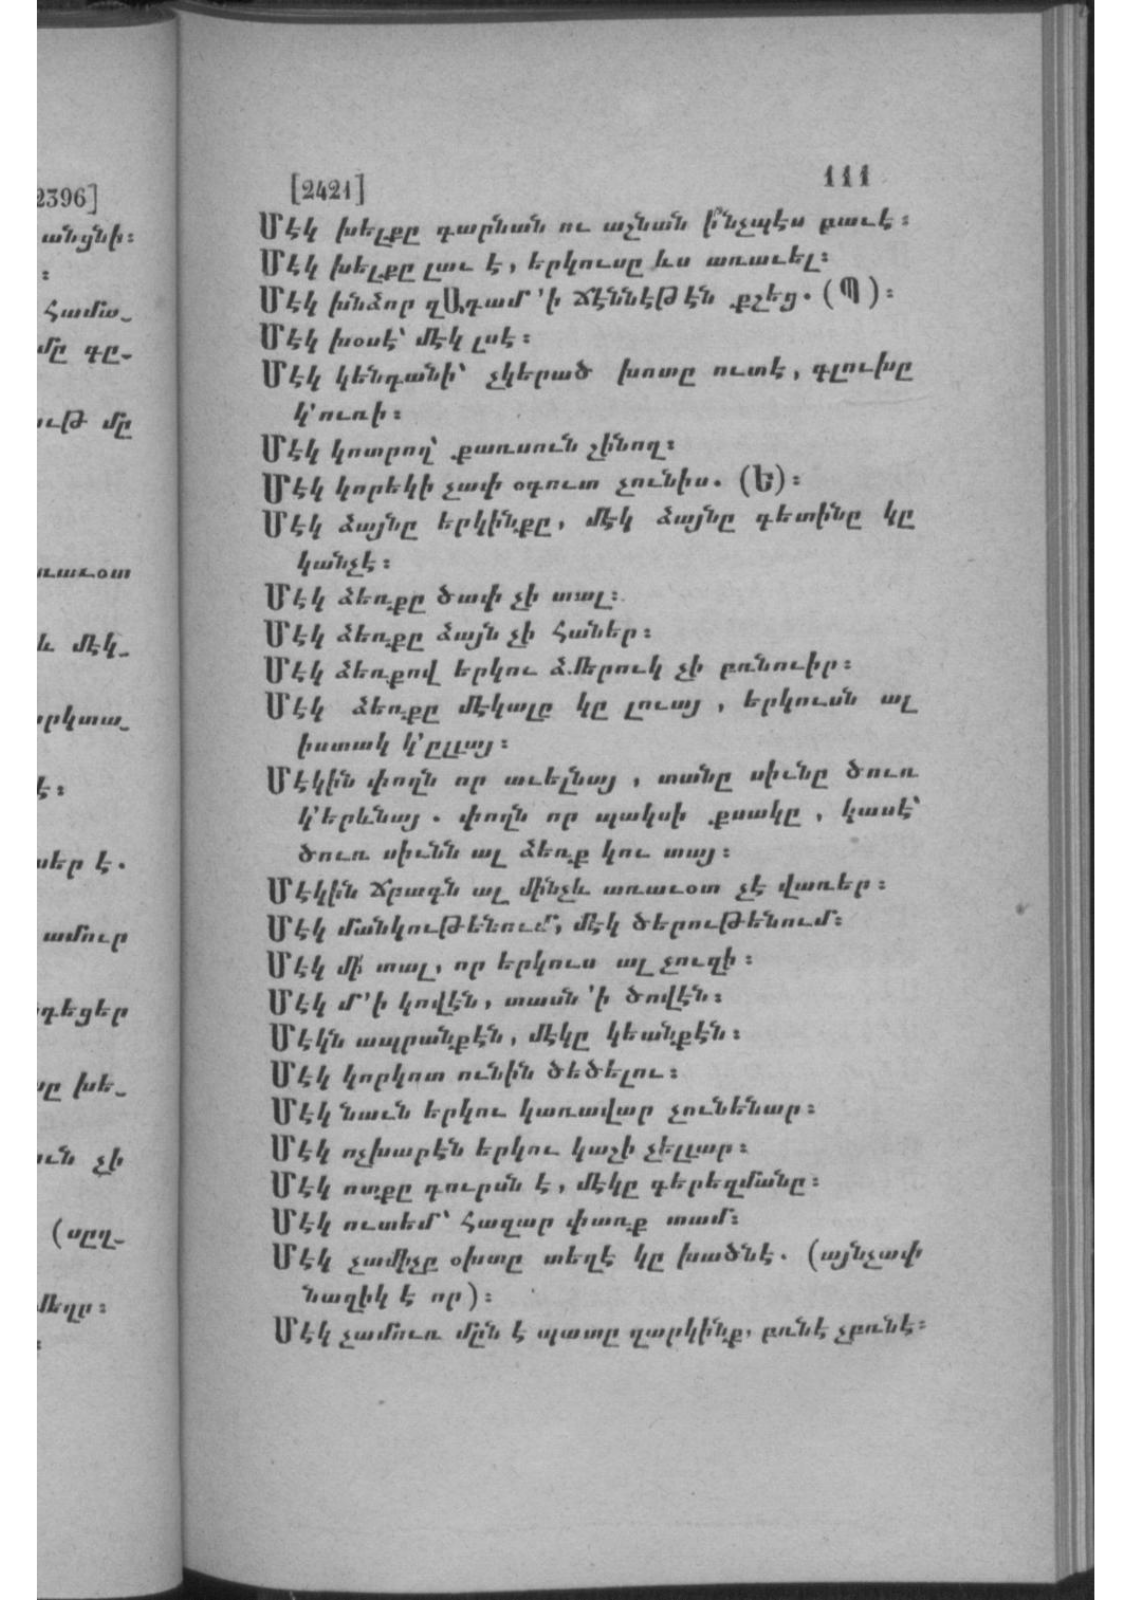 2396]
անցնի։
։
համա֊
մը գը֊
ութ մը
ռաւօտ
և մէկ֊
րկտա֊
է։
սեր է.
ամուր
գեցեր
ը խե֊
ւն չի
(սըղ֊
մեղր։
[2421] 111
Մէկ խելքը գարնան ու աշնան ի՞նչպէս բաւէ։
Մէկ խելքը լաւ է, երկուսը ևս առաւել։
Մէկ խնձոր զԱդամ ՚ի ճէննէթէն քշեց. (Պ)։
Մէկ խօսէ՝ մէկ լսէ։
Մէկ կենդանի՝ չկերած խոտը ուտէ, գլուխը
կ՚ուռի։
Մէկ կոտրող՝ քառսուն շինող։
Մէկ կորեկի չափ օգուտ չունիս. (Ե)։
Մէկ ձայնը երկինքը, մէկ ձայնը գետինը կը
կանչէ։
Մէկ ձեռքը ծափ չի տալ։
Մէկ ձեռքը ձայն չի հաներ։
Մէկ ձեռքով երկու ձմերուկ չի բռնուիր։
Մէկ ձեռքը մէկալը կը լուայ, երկուսն ալ
իստակ կ՚ըլլայ։
Մէկին փողն որ աւելնայ, տանը սիւնը ծուռ
կ՚երևնայ. փողն որ պակսի քսակը, կասէ՝
ծուռ սիւնն ալ ձեռք կու տայ։
Մէկին ճրագն ալ մինչև առաւօտ չէ վառեր։
Մէկ մանկութենում, մէկ ծերութենում։
Մէկ մի՛ տալ, որ երկուս ալ չուզի։
Մէկ մ՚ի կովէն, տասն ՚ի ծովէն։
Մէկն ապրանքէն, մէկը կեանքէն։
Մէկ կորկոտ ունին ծեծելու։
Մէկ նաւն երկու կառավար չունենար։
Մէկ ոչխարէն երկու կաշի չելլար։
Մէկ ոտքը դուրսն է, մէկը գերեզմանը։
Մէկ ուտեմ՝ հազար փառք տամ։
Մէկ չամիչը օխտը տեղէ կը խածնէ. (այնչափ
նազիկ է որ)։
Մէկ չամուռ մըն է պատը զարկինք, բռնէ չբռնէ։